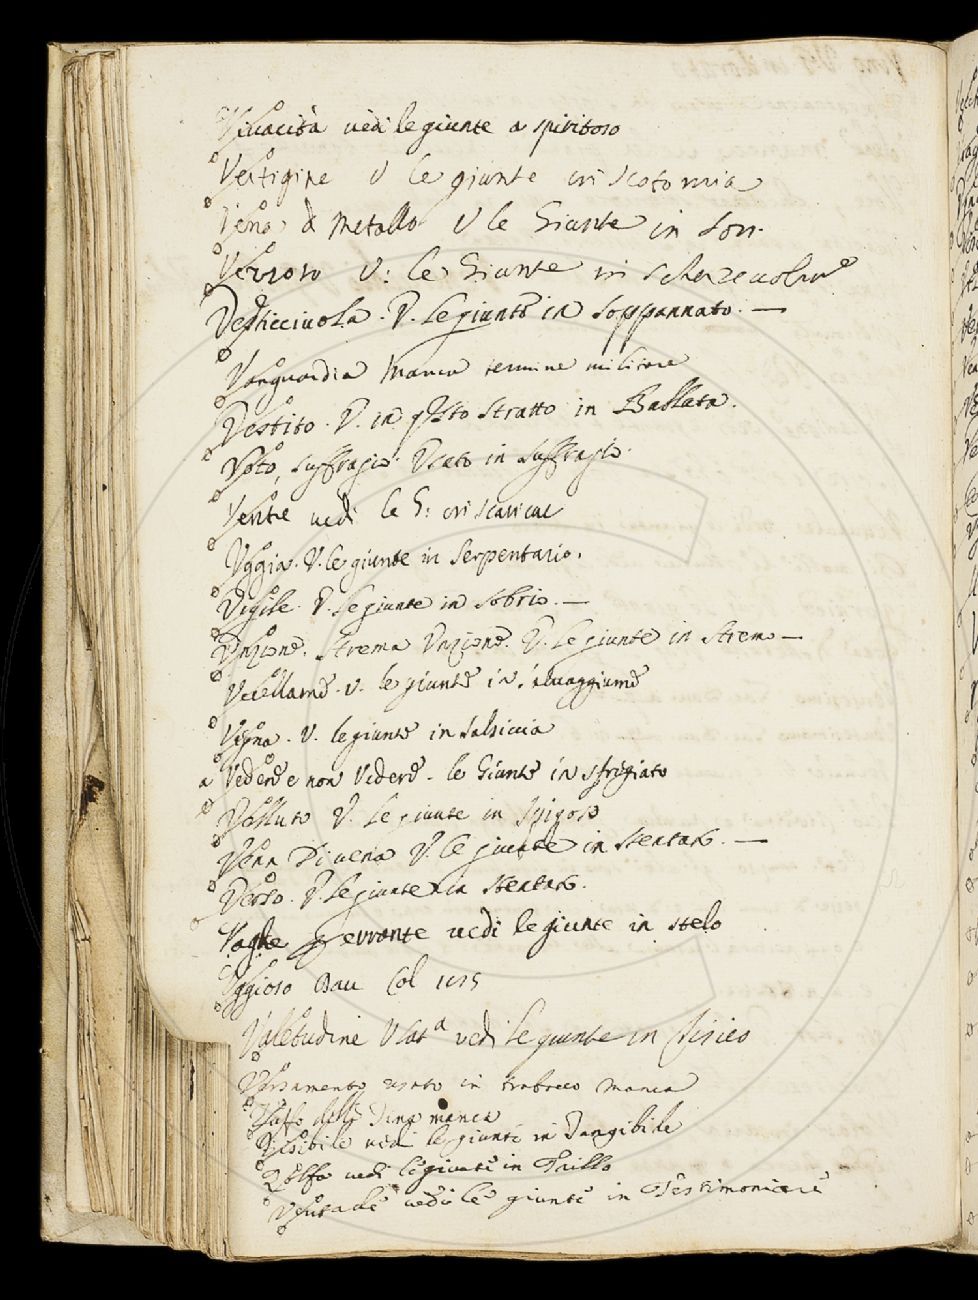 Vivacità vedi le giunte a spiritoso
Vertigine V le giunte in Scotomia
Vena di Metallo V le Giunte in
Vezzoso V: le Giunte in scherzevolme
Vesticciuola. V. le giunte in soppannato. —
Vanguardia manca termine militare
Vestito. V. in qsto stratto in Ballata.
Voto, suffragio. Usato in suffragio.
Ventre vedi le G: in scaricar
Uggia. V. le giunte in Serpentario.
Vigile. V. le giunte in sobrio. —
Unzione. strema Unzione. V. le giunte in stremo —
Uccellame. v. le giunte in salvaggiume
Vigna. V. le giunte in salsiccia
a Vedere e non Vedere. le Giunte in sfregiato
Velluto V. le giunte in
Vena Di vena V. le giunte in stentato. —
Verso. V. le giunte in stentato.
Vaghe errante vedi le giunte in stelo
Uggioso Dav Col
Valetudine Usata vedi le giunte in Tisico
Versamento usato in trabocco manca
manca
Visibile vedi le giunte in Tangibile
vedi le giunte in Trillo
vedi le giunte in Testimoniare